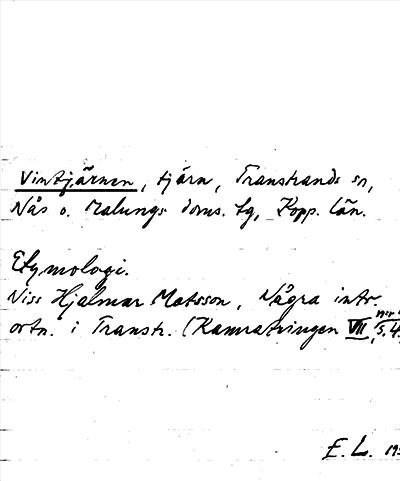 Vintjärnen, tjärn, Transtrands sn,
Nås o. Malungs doms. tg, Kopp. län.
Etymologi.
Niss Hjalmar Matsson, Några intr.
ortn. i Transtr. (Kamratringen VII, nr
s. 4
E. L. 19